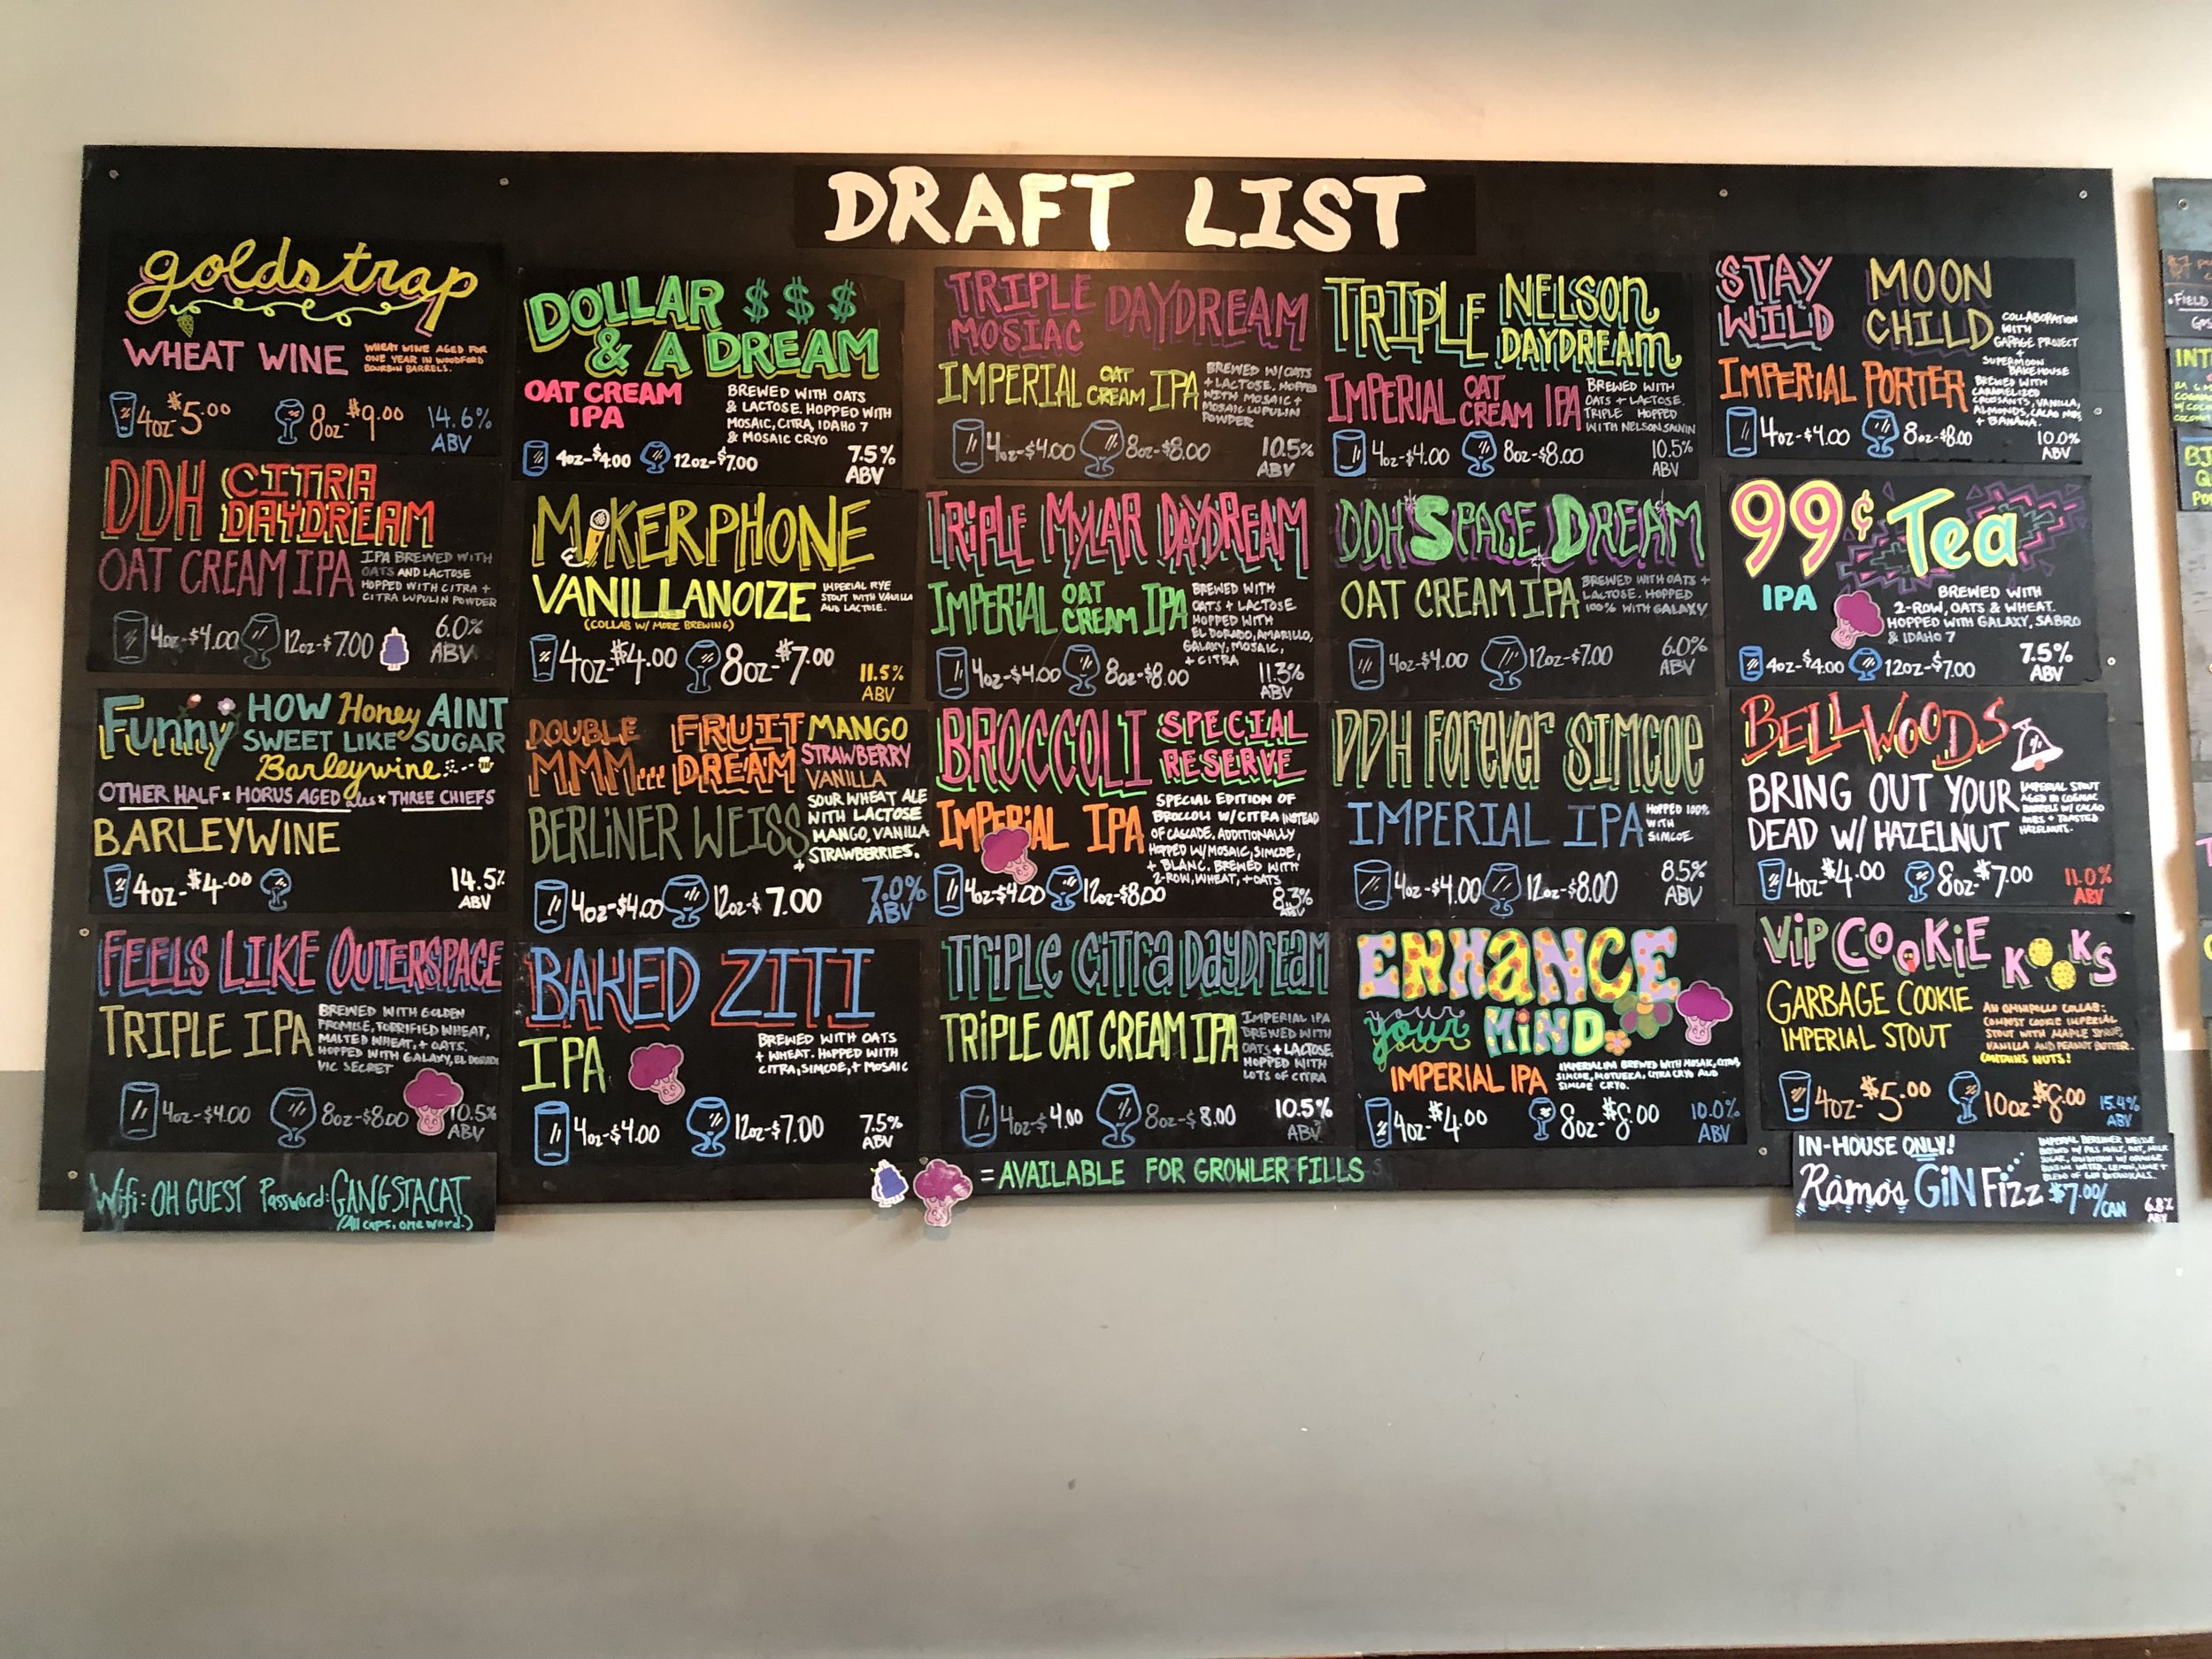 DRAFT LIST
goldstrap
WHEAT WINE
WHEAT WINE AGED FOR
ONE YEAR IN WOODFORD
BOURBON BARRELS.
4oz-$5.00 8oz-$9.00 14.6%
ABV
DDH CITRA
DAYDREAM
OAT CREAM IPA
IPA BREWED WITH
OATS AND LACTOSE
HOPPED WITH CITRA +
CITRA LUPULIN POWDER
4oz-$4.00 12oz-$7.00 6.0%
ABV
Funny HOW Honey AINT
SWEET LIKE SUGAR
Barleywine
OTHER HALF x HORUS AGED ales x THREE CHIEFS
BARLEYWINE
4oz-$4.00 14.5%
ABV
FEELS LIKE OUTERSPACE
TRIPLE IPA
BREWED WITH GOLDEN
PROMISE, TORRIFIED WHEAT,
MALTED WHEAT, + OATS.
HOPPED WITH GALAXY, EL DORADO
VIC SECRET
4oz-$4.00 8oz-$8.00 10.5%
ABV
Wifi: OH GUEST Password: GANGSTACAT
(All caps. one word.)
DOLLAR $ $ $
& A DREAM
OAT CREAM
IPA
BREWED WITH OATS
& LACTOSE. HOPPED WITH
MOSAIC, CITRA, IDAHO 7
& MOSAIC CRYO
4oz-$4.00 12oz-$7.00 7.5%
ABV
MIKERPHONE
VANILLANOIZE
(COLLAB W/ MORE BREWING)
IMPERIAL RYE
STOUT WITH VANILLA
AND LACTOSE.
4oz-$4.00 8oz-$7.00 11.5%
ABV
DOUBLE FRUIT MANGO
MMM... DREAM STRAWBERRY
VANILLA
BERLINER WEISS
SOUR WHEAT ALE
WITH LACTOSE
MANGO, VANILLA
+ STRAWBERRIES.
4oz-$4.00 12oz-$7.00 7.0%
ABV
BAKED ZITI
IPA
BREWED WITH OATS
+ WHEAT. HOPPED WITH
CITRA, SIMCOE, + MOSAIC
4oz-$4.00 12oz-$7.00 7.5%
ABV
TRIPLE DAYDREAM
MOSIAC
IMPERIAL OAT CREAM IPA
BREWED W/OATS
+ LACTOSE. HOPPED
WITH MOSAIC +
MOSAIC LUPULIN
POWDER
4oz-$4.00 8oz-$8.00 10.5%
ABV
TRIPLE MYLAR DAYDREAM
IMPERIAL OAT CREAM IPA
BREWED WITH
OATS + LACTOSE
HOPPED WITH
EL DORADO, AMARILLO,
GALAXY, MOSAIC,
+ CITRA
4oz-$4.00 8oz-$8.00 11.3%
ABV
BROCCOLI SPECIAL
RESERVE
IMPERIAL IPA
SPECIAL EDITION OF
BROCCOLI W/CITRA INSTEAD
OF CASCADE. ADDITIONALLY
HOPPED W/MOSAIC, SIMCOE,
+ BLANC. BREWED WITH
2-ROW, WHEAT, + OATS
4oz-$4.00 12oz-$8.00 8.3%
ABV
TRIPLE CITRA DAYDREAM
TRIPLE OAT CREAM IPA
IMPERIAL IPA
BREWED WITH
OATS + LACTOSE
HOPPED WITH
LOTS OF CITRA
4oz-$4.00 8oz-$8.00 10.5%
ABV
= AVAILABLE FOR GROWLER FILLS
TRIPLE NELSON
DAYDREAM
IMPERIAL OAT CREAM IPA
BREWED WITH
OATS + LACTOSE.
TRIPLE HOPPED
WITH NELSON SAUVIN
4oz-$4.00 8oz-$8.00 10.5%
ABV
DDH SPACE DREAM
OAT CREAM IPA
BREWED WITH OATS +
LACTOSE. HOPPED
100% WITH GALAXY
4oz-$4.00 12oz-$7.00 6.0%
ABV
DDH Forever SIMCOE
IMPERIAL IPA
HOPPED 100%
WITH
SIMCOE
4oz-$4.00 12oz-$8.00 8.5%
ABV
ENHANCE
your MIND
IMPERIAL IPA
IMPERIAL IPA BREWED WITH MOSAIC, CITRA,
SIMCOE, MOTUEKA, CITRA CRYO AND
SIMCOE CRYO.
4oz-$4.00 8oz-$8.00 10.0%
ABV
STAY MOON
WILD CHILD
COLLABORATION
WITH
GARAGE PROJECT
+
SUPERMOON
BAKEHOUSE
IMPERIAL PORTER
BREWED WITH
CARAMELIZED
CROISSANTS, VANILLA,
ALMONDS, CACAO NIBS
+ BANANA.
4oz-$4.00 8oz-$8.00 10.0%
ABV
99¢ Tea
IPA
BREWED WITH
2-ROW, OATS & WHEAT.
HOPPED WITH GALAXY, SABRO
& IDAHO 7
4oz-$4.00 12oz-$7.00 7.5%
ABV
BELLWOODS
BRING OUT YOUR
DEAD W/ HAZELNUT
IMPERIAL STOUT
AGED IN COGNAC
BARRELS W/ CACAO
NIBS + TOASTED
HAZELNUTS.
4oz-$4.00 8oz-$7.00 11.0%
ABV
VIP COOKIE KOOKS
GARBAGE COOKIE
IMPERIAL STOUT
AN OMNIPOLLO COLLAB:
COMPOST COOKIE IMPERIAL
STOUT WITH MAPLE SYRUP,
VANILLA AND PEANUT BUTTER.
CONTAINS NUTS!
4oz-$5.00 10oz-$8.00 15.4%
ABV
IN-HOUSE ONLY!
Ramos GIN Fizz $7.00/CAN
IMPERIAL BERLINER WEISSE
6.8%
ABV
FIELD